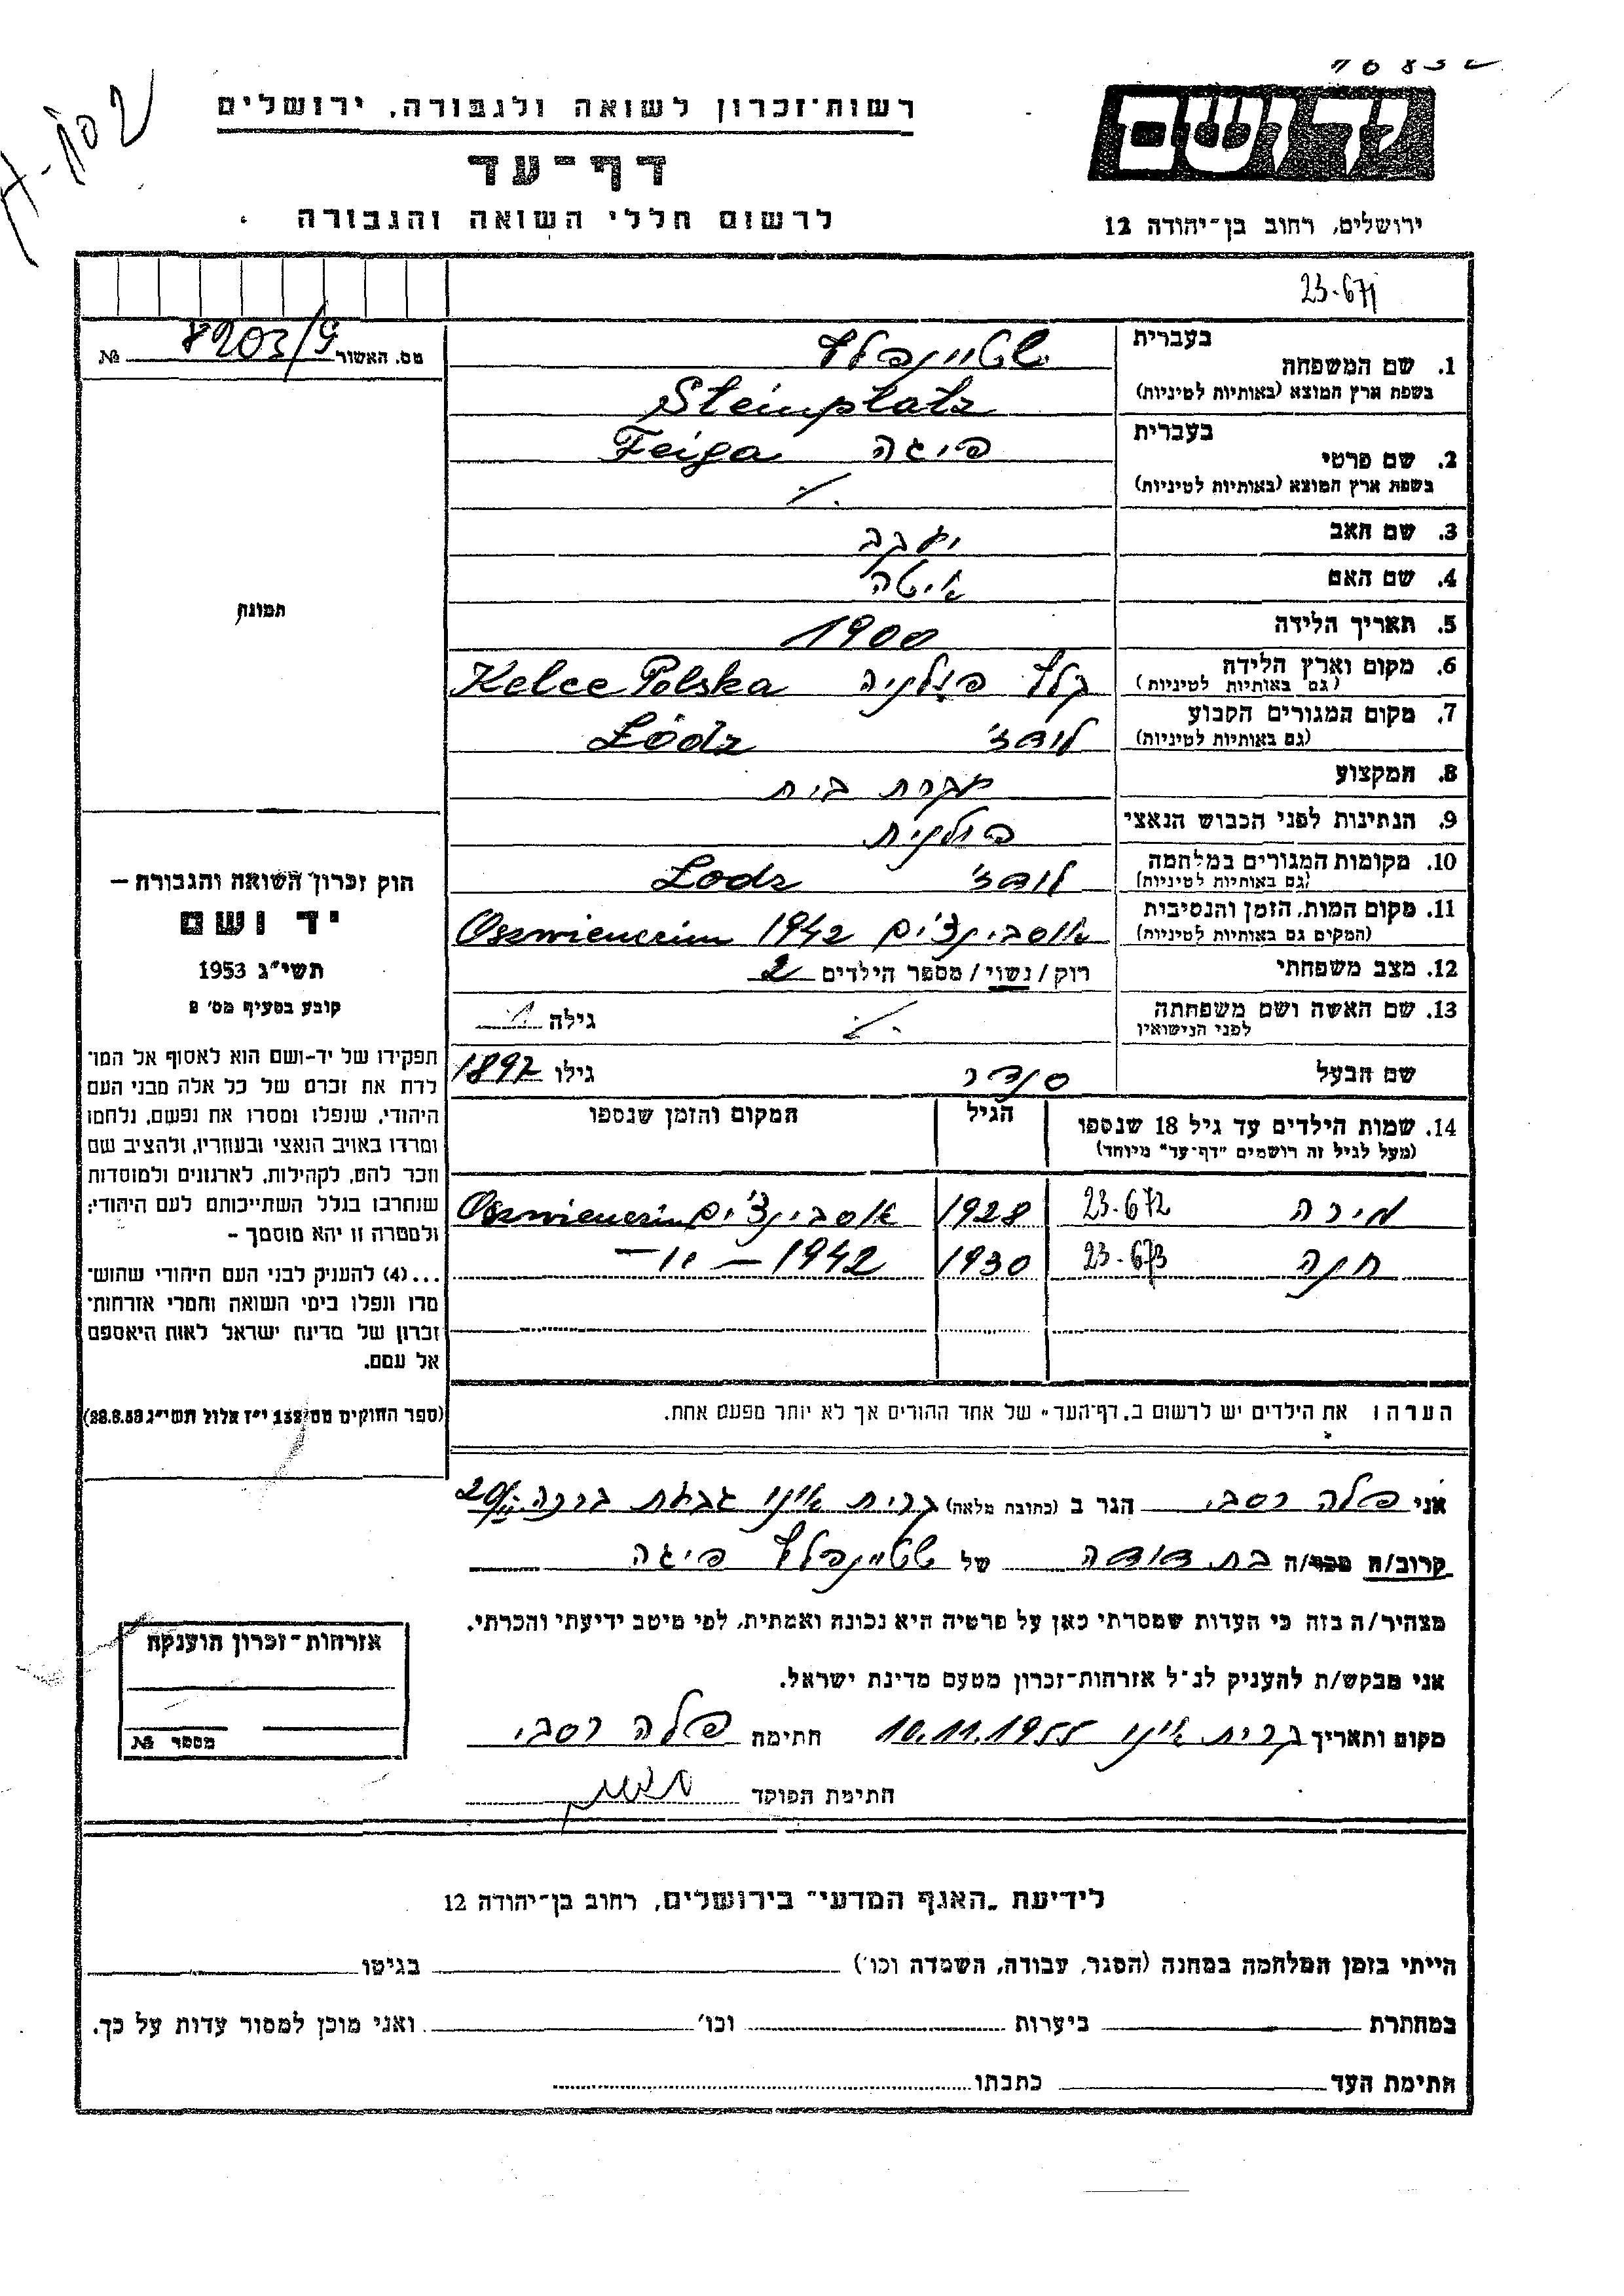 רשות־זכרון לשואה ולגבורה, ירושלים
דף־עד
לרשום חללי השואה והגבורה
יד ושם
ירושלים, רחוב בן־יהודה 12
23.671
מס. האשור 8203/9 №
תמונה
1. שם המשפחה
בעברית שטיינפלץ
בשפת ארץ המוצא (באותיות לטיניות) Steinplatz
2. שם פרטי
בעברית פיגה Feiga
בשפת ארץ המוצא (באותיות לטיניות)
3. שם האב יעקב
4. שם האם איטה
5. תאריך הלידה 1900
6. מקום וארץ הלידה קלץ פולניה Kelce Polska
(גם באותיות לטיניות)
7. מקום המגורים הקבוע לודז' Łódz
(גם באותיות לטיניות)
8. המקצוע עקרת בית
9. הנתינות לפני הכבוש הנאצי פולנית
10. מקומות המגורים במלחמה לודז' Lodz
(גם באותיות לטיניות)
11. מקום המות, הזמן והנסיבות אוסבינצ'ים 1942 Oszwienczim
(המקום גם באותיות לטיניות)
12. מצב משפחתי רוק / נשוי / מספר הילדים 2
13. שם האשה ושם משפחתה גילה
לפני הנישואין
שם הבעל סנדר גילו 1897
14. שמות הילדים עד גיל 18 שנספו הגיל המקום והזמן שנספו
(מעל לגיל זה רושמים "דף־עד" מיוחד)
מירה 23.672 1928 אוסבינצ'ים Oszwienczim
חנה 23.673 1930 1942 — " —
הערה: את הילדים יש לרשום ב„דף־העד" של אחד ההורים אך לא יותר מפעם אחת.
חוק זכרון השואה והגבורה —
יד ושם
תשי"ג 1953
קובע בסעיף מס' 2
תפקידו של יד־ושם הוא לאסוף אל המו־
לדת את זכרם של כל אלה מבני העם
היהודי, שנפלו ומסרו את נפשם, נלחמו
ומרדו באויב הנאצי ובעוזריו, ולהציב שם
וזכר להם, לקהילות, לארגונים ולמוסדות
שנחרבו בגלל השתייכותם לעם היהודי;
ולמטרה זו יהא מוסמך —
...(4) להעניק לבני העם היהודי שהוש־
מדו ונפלו בימי השואה והמרי אזרחות־
זכרון של מדינת ישראל לאות היאספם
אל עמם.
(ספר החוקים מס' 132 י"ז אלול תשי"ג 28.8.53)
אני פלה רסבי הגר ב (כתובת מלאה) קרית אונו גבעת
קרוב/ה מכר/ה בת דודה של שטיינפלץ פיגה
מצהיר/ה בזה כי העדות שמסרתי כאן על פרטיה היא נכונה ואמתית, לפי מיטב ידיעתי והכרתי.
אני מבקש/ת להעניק לנ"ל אזרחות־זכרון מטעם מדינת ישראל.
מקום ותאריך קרית אונו 10.11.1955 חתימה פלה רסבי
חתימת הפוקד
אזרחות־זכרון הוענקה
מספר №
לידיעת „האגף המדעי" בירושלים, רחוב בן־יהודה 12
הייתי בזמן המלחמה במחנה (הסגר, עבודה, השמדה וכו') בגיטו
במחתרת ביערות וכו' ואני מוכן למסור עדות על כך.
חתימת העד כתבתו